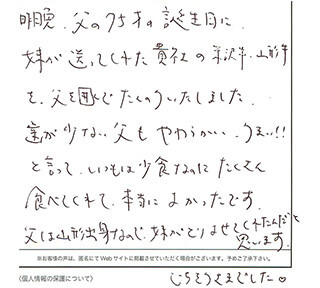 昨晩、父の75才の誕生日に、
妹が送ってくれた貴社の米沢牛、山形牛
を、父を囲んでたべいたしました。
歯が少ない父もやわらかい、うまい!!
と言って、いつもは少食なのにたくさん
食べてくれて、本当によかったです。
父は山形出身なので、妹がとりよせてくれたんだと
思います。
※お客様の声は、匿名にてWebサイトに掲載させていただく場合がございます。予めご了承下さい。
〈個人情報の保護について〉
ごちそうさまでした♡